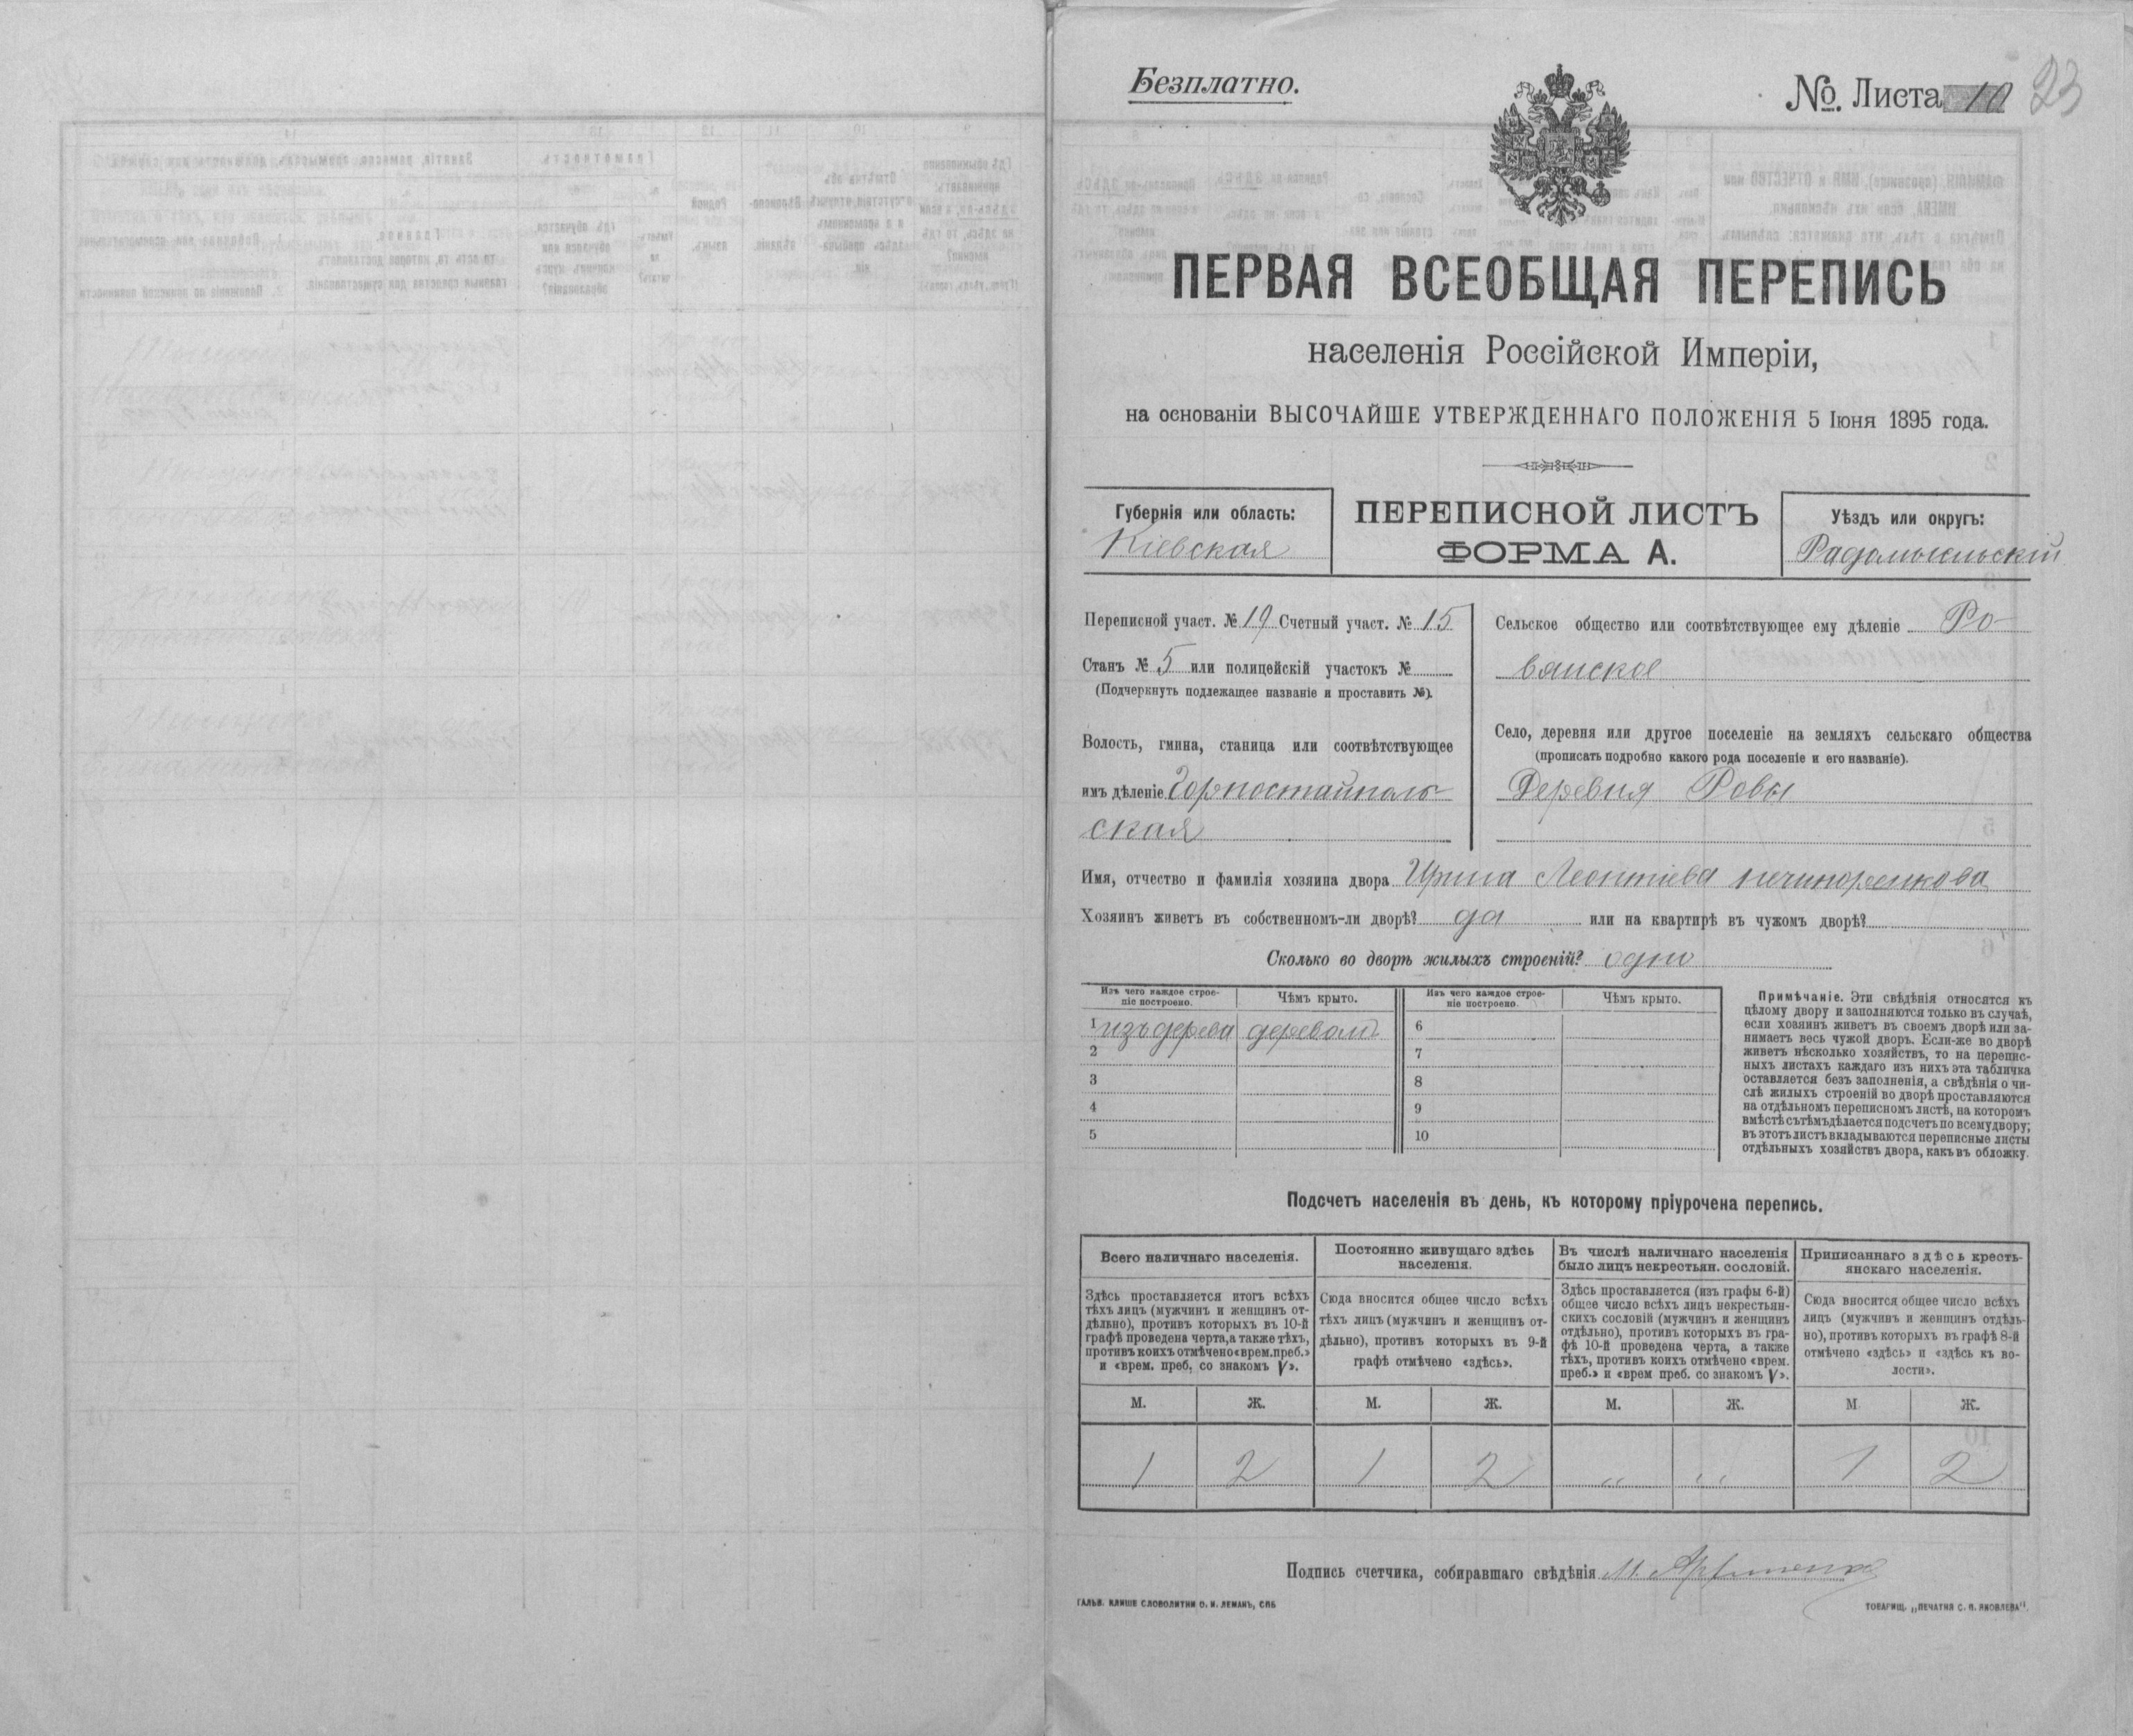 Безплатно.
№ Листа 10
23
ПЕРВАЯ ВСЕОБЩАЯ ПЕРЕПИСЬ
населенія Россійской Имперіи,
на основаніи ВЫСОЧАЙШЕ УТВЕРЖДЕННАГО ПОЛОЖЕНІЯ 5 Іюня 1895 года.
Губернія или область:
Кіевская
ПЕРЕПИСНОЙ ЛИСТЪ
ФОРМА А.
Уѣздъ или округъ:
Радомысльскій
Переписной участ. № 19 Счетный участ. № 15
Станъ № 5 или полицейскій участокъ №
(Подчеркнуть подлежащее названіе и проставить №).
Волость, гмина, станица или соотвѣтствующее
имъ дѣленіе Горностайполь-
ская
Сельское общество или соотвѣтствующее ему дѣленіе Ро-
вянское
Село, деревня или другое поселеніе на земляхъ сельскаго общества
(прописать подробно какого рода поселеніе и его названіе).
Деревня Ровы
Имя, отчество и фамилія хозяина двора Ирина Леонтіева
Хозяинъ живетъ въ собственномъ-ли дворѣ? да или на квартирѣ въ чужомъ дворѣ?
Сколько во дворѣ жилыхъ строеній? одно
Изъ чего каждое строе-
ніе построено.
Чѣмъ крыто.
1 изъ дерева деревомъ
2
3
4
5
Изъ чего каждое строе-
ніе построено.
Чѣмъ крыто.
6
7
8
9
10
Примѣчаніе. Эти свѣдѣнія относятся къ
цѣлому двору и заполняются только въ случаѣ,
если хозяинъ живетъ въ своемъ дворѣ или за-
нимаетъ весь чужой дворъ. Если-же во дворѣ
живетъ нѣсколько хозяйствъ, то на перепис-
ныхъ листахъ каждаго изъ нихъ эта табличка
оставляется безъ заполненія, а свѣдѣнія о чи-
слѣ жилыхъ строеній во дворѣ проставляются
на отдѣльномъ переписномъ листѣ, на которомъ
вмѣстѣ съ тѣмъ дѣлается подсчетъ по всему двору;
въ этотъ листъ вкладываются переписные листы
отдѣльныхъ хозяйствъ двора, какъ въ обложку.
Подсчетъ населенія въ день, къ которому пріурочена перепись.
Всего наличнаго населенія.
Здѣсь проставляется итогъ всѣхъ
тѣхъ лицъ (мужчинъ и женщинъ от-
дѣльно), противъ которыхъ въ 10-й
графѣ проведена черта, а также тѣхъ,
противъ коихъ отмѣчено «врем. преб.»
и «врем. преб. со знакомъ V».
Постоянно живущаго здѣсь
населенія.
Сюда вносится общее число всѣхъ
тѣхъ лицъ (мужчинъ и женщинъ от-
дѣльно), противъ которыхъ въ 9-й
графѣ отмѣчено «здѣсь».
Въ числѣ наличнаго населенія
было лицъ некрестьян. сословій.
Здѣсь проставляется (изъ графы 6-й)
общее число всѣхъ лицъ некрестьян-
скихъ сословій (мужчинъ и женщинъ
отдѣльно), противъ которыхъ въ гра-
фѣ 10-й проведена черта, а также
тѣхъ, противъ коихъ отмѣчено «врем.
преб.» и «врем преб. со знакомъ V».
Приписаннаго здѣсь кресть-
янскаго населенія.
Сюда вносится общее число всѣхъ
лицъ (мужчинъ и женщинъ отдѣль-
но), противъ которыхъ въ графѣ 8-й
отмѣчено «здѣсь» и «здѣсь къ во-
лости».
М. Ж. М. Ж. М. Ж. М Ж.
1 2 1 2 „ „ 1 2
Подпись счетчика, собиравшаго свѣдѣнія М.
ГАЛЬВ. КЛИШЕ СЛОВОЛИТНИ О. И. ЛЕМАНЪ, СПБ
ТОВАРИЩ. „ПЕЧАТНЯ С. П. ЯКОВЛЕВА".